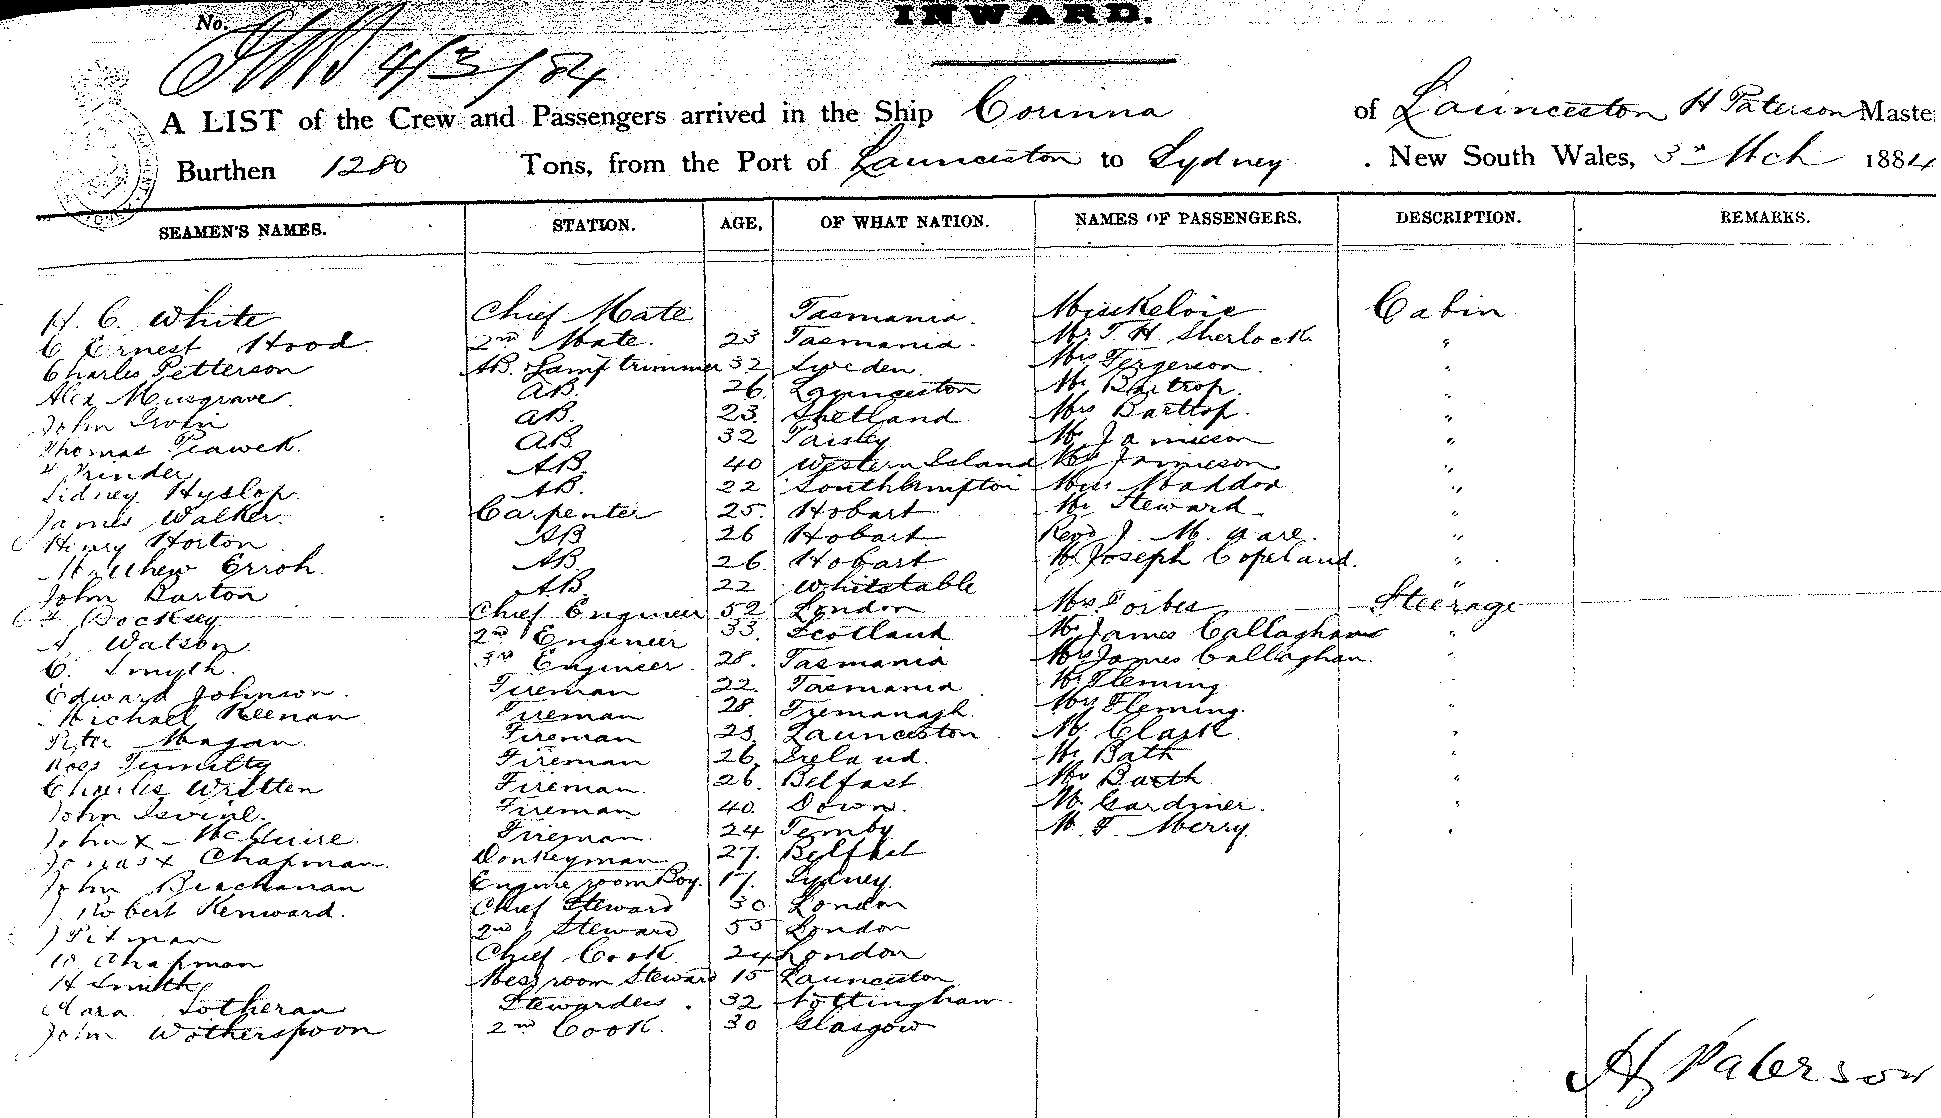 INWARD.
No.
4/3/84
A LIST of the Crew and Passengers arrived in the Ship Corinna of Launceston H Paterson Master
Burthen 1280 Tons, from the Port of Launceston to Sydney . New South Wales, 3rd Mch 1884
SEAMEN'S NAMES. STATION. AGE. OF WHAT NATION. NAMES OF PASSENGERS. DESCRIPTION. REMARKS.
H. C. White Chief Mate Tasmania. Cabin
C Ernest Hood 2nd Mate. 23 Tasmania. Mr T. H. Sherlock "
Charles Petterson AB. & Lamp trimmer 32 Sweden. Mrs Fergerson. "
Alex Musgrave. AB. 26. Launceston Mr Bartrop. "
John Irvin AB. 23. Shetland Mrs Bartrop. "
Thomas AB 32 Paisley Mr Jamieson "
Prinder AB. 40 Western Island Mrs Jamieson "
Sidney Hyslop. AB. 22 Southampton Miss Maddox "
James Walker. Carpenter 25. Hobart Mr Steward "
Henry Horton AB 26 Hobart Revd J. M. Ware. "
Matthew Erroh. AB. 26. Hobart Mr Joseph Copeland. "
John Barton AB. 22 Whitstable "
Docksey Chief Engineer 52 London Mrs Forbes Steerage
A Watson. 2nd Engineer 33. Scotland Mr James Callaghan "
C. Smyth. 3rd Engineer. 28. Tasmania Mrs James Callaghan. "
Edward Johnson. Fireman 22. Tasmania Mr Fleming "
Michael Keenan Fireman 28. Fremanagh. Mrs Fleming. "
Peter Magan. Fireman 23. Launceston Mr Clark. "
Ross Tumilty Fireman 26. Ireland. Mr Bath "
Charles Written Fireman. 26. Belfast Mrs Barth "
John Irvine. Fireman 40. Down. Mr Gardiner. "
John x McGuire. Fireman. 24 Temby Mr F. Merry. "
x Chapman. Donkeyman 27. Belfast
John Buchanan Engine room Boy. 17. Sydney.
Robert Kenward. Chief Steward 30 London
J Pitman 2nd Steward 55 London
W Chapman Chief Cook 24 London
H Smith Messroom Steward 15 Launceston
Clara Sotheran Stewardess. 32 Nottingham.
John Wotherspoon 2nd Cook. 30 Glasgow
H Paterson